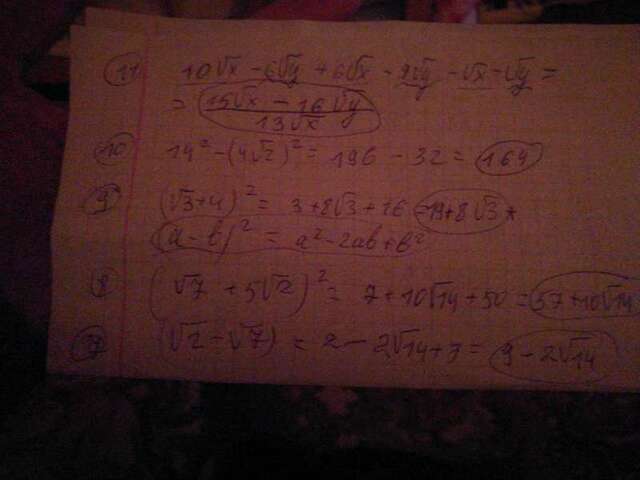 11 10√x - 6√y + 6√x - 9√y - √x - √y =
= 15√x - 16√y
13√x
10 14² - (4√2)² = 196 - 32 = 164
9 (√3+4)² = 3+8√3+16 = 19+8√3 *
(a-b)² = a²-2ab+b²
8 (√7 + 5√2)² = 7+10√14+50 = 57+10√14
7 (√2-√7) = 2-2√14+7 = 9-2√14